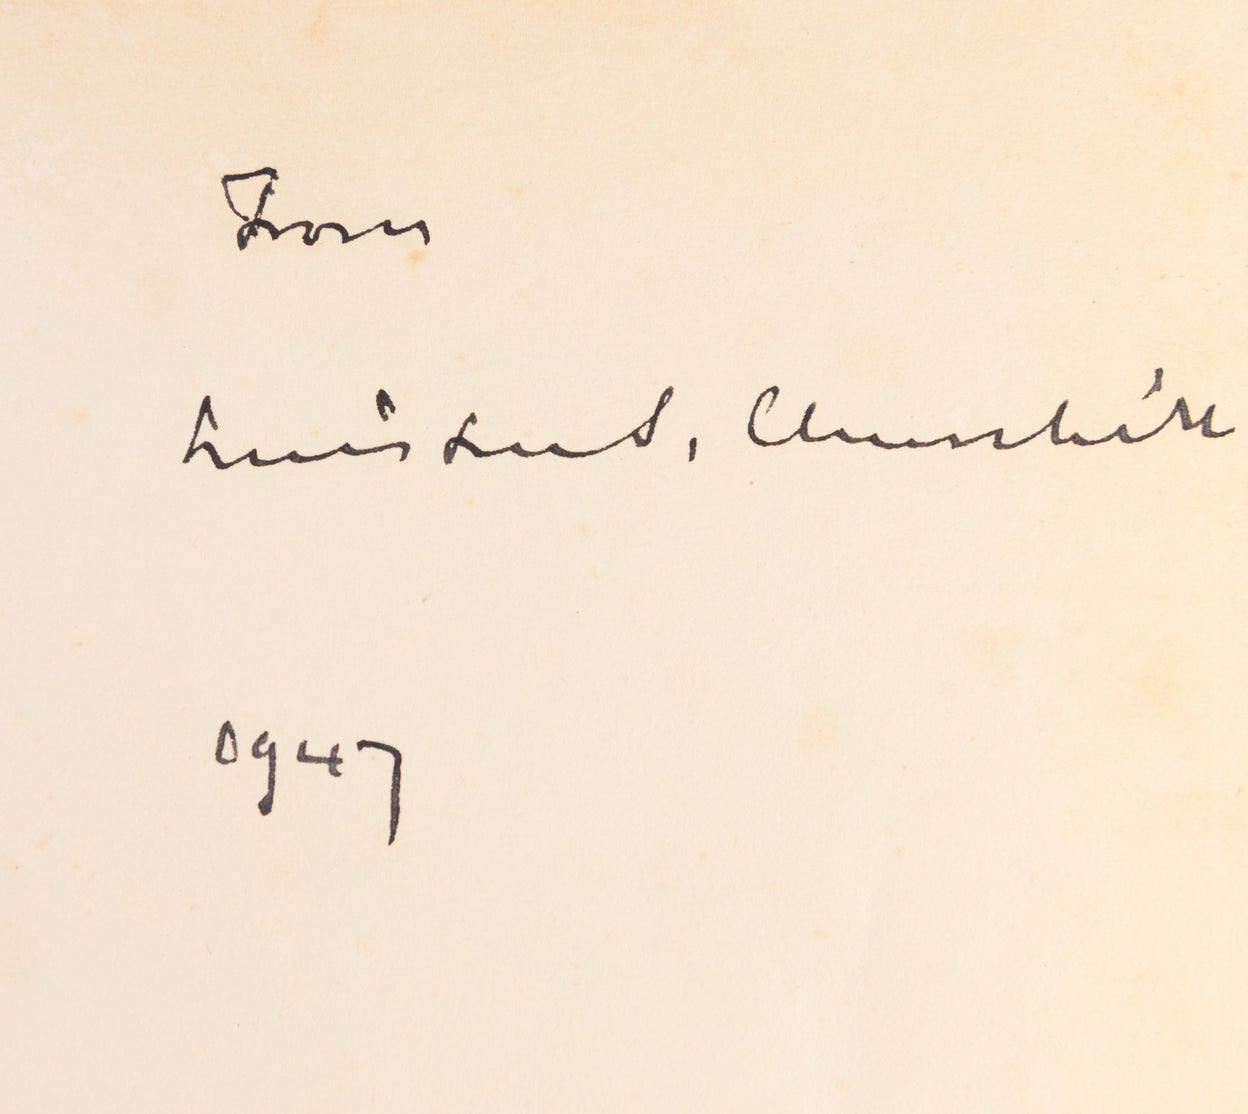 From
Winston S. Churchill
1947